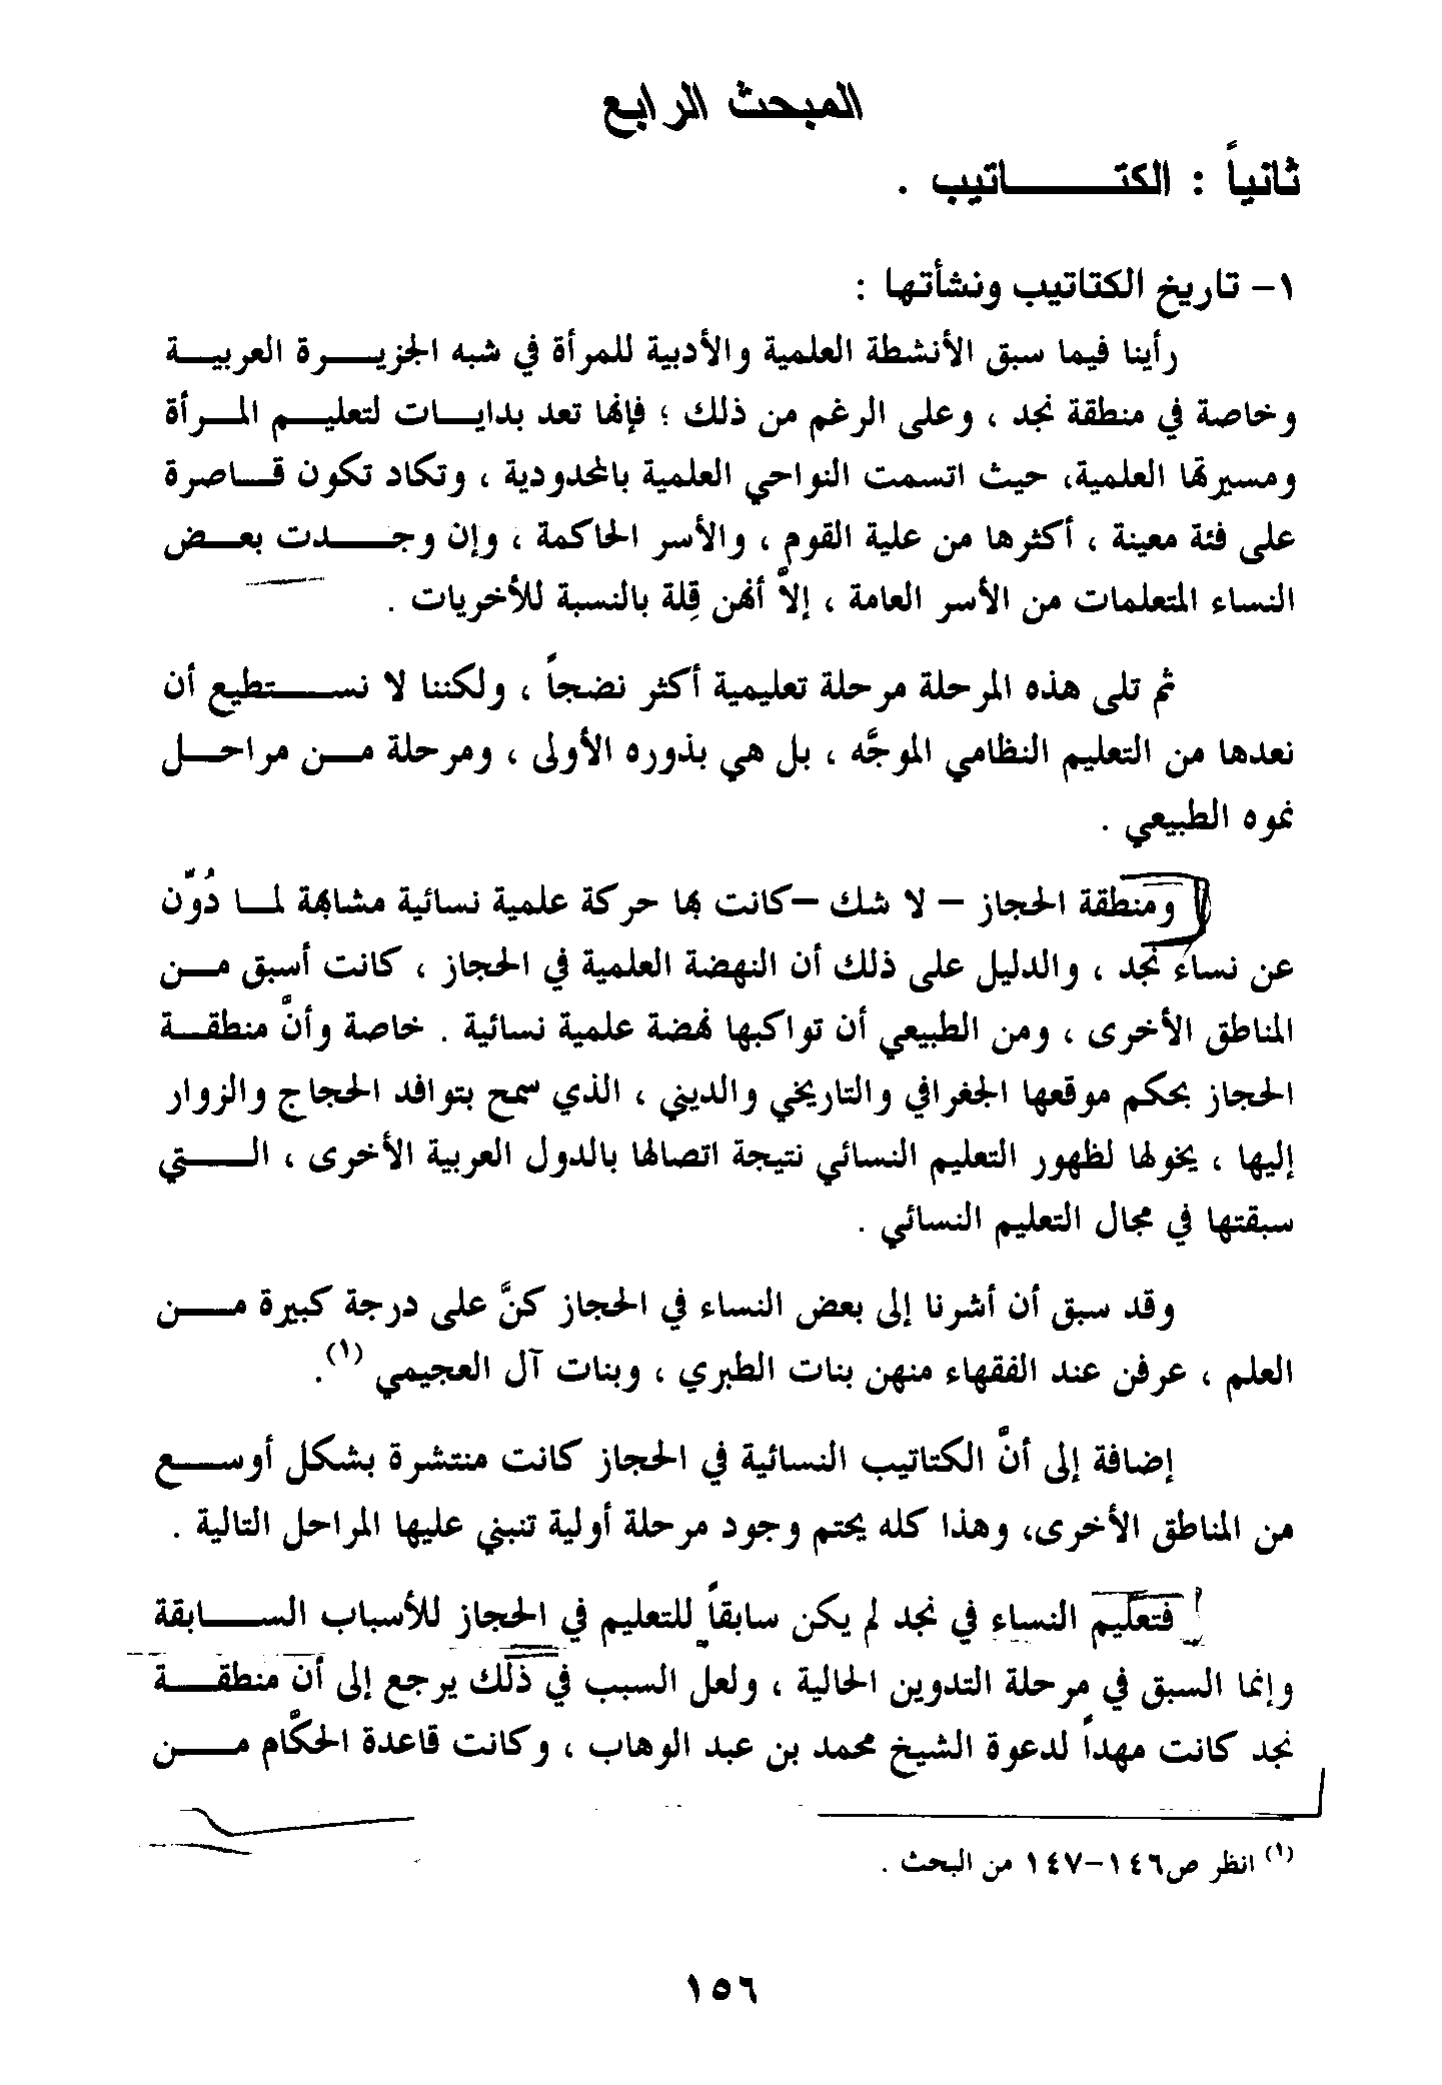 المبحث الرابع
ثانياً : الكتاتيب .
١- تاريخ الكتاتيب ونشأتها :
رأينا فيما سبق الأنشطة العلمية والأدبية للمرأة في شبه الجزيرة العربية
وخاصة في منطقة نجد ، وعلى الرغم من ذلك ؛ فإنها تعد بدايات لتعليم المرأة
ومسيرتها العلمية، حيث اتسمت النواحي العلمية بالمحدودية ، وتكاد تكون قاصرة
على فئة معينة ، أكثرها من علية القوم ، والأسر الحاكمة ، وإن وجدت بعض
النساء المتعلمات من الأسر العامة ، إلاَّ أنهن قِلة بالنسبة للأخريات .
ثم تلى هذه المرحلة مرحلة تعليمية أكثر نضجاً ، ولكننا لا نستطيع أن
نعدها من التعليم النظامي الموجَّه ، بل هي بذوره الأولى ، ومرحلة من مراحل
نموه الطبيعي .
ومنطقة الحجاز – لا شك –كانت بها حركة علمية نسائية مشابهة لما دُوِّن
عن نساء نجد ، والدليل على ذلك أن النهضة العلمية في الحجاز ، كانت أسبق من
المناطق الأخرى ، ومن الطبيعي أن تواكبها نهضة علمية نسائية . خاصة وأنَّ منطقة
الحجاز بحكم موقعها الجغرافي والتاريخي والديني ، الذي سمح بتوافد الحجاج والزوار
إليها ، يخولها لظهور التعليم النسائي نتيجة اتصالها بالدول العربية الأخرى ، التي
سبقتها في مجال التعليم النسائي .
وقد سبق أن أشرنا إلى بعض النساء في الحجاز كنَّ على درجة كبيرة من
العلم ، عرفن عند الفقهاء منهن بنات الطبري ، وبنات آل العجيمي (١).
إضافة إلى أنَّ الكتاتيب النسائية في الحجاز كانت منتشرة بشكل أوسع
من المناطق الأخرى، وهذا كله يحتم وجود مرحلة أولية تنبني عليها المراحل التالية .
فتعليم النساء في نجد لم يكن سابقاً للتعليم في الحجاز للأسباب السابقة
وإنما السبق في مرحلة التدوين الحالية ، ولعل السبب في ذلك يرجع إلى أن منطقة
نجد كانت مهداً لدعوة الشيخ محمد بن عبد الوهاب ، وكانت قاعدة الحكَّام من
(١) انظر ص١٤٦-١٤٧ من البحث .
١٥٦